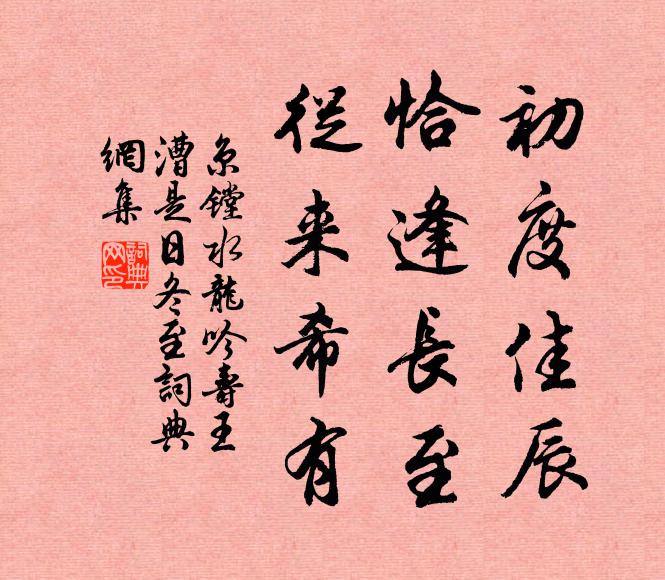 初度佳辰
恰逢長至
從来希有
京鏜水龍吟壽王
漕是日冬至詞典
網集
詞典網印